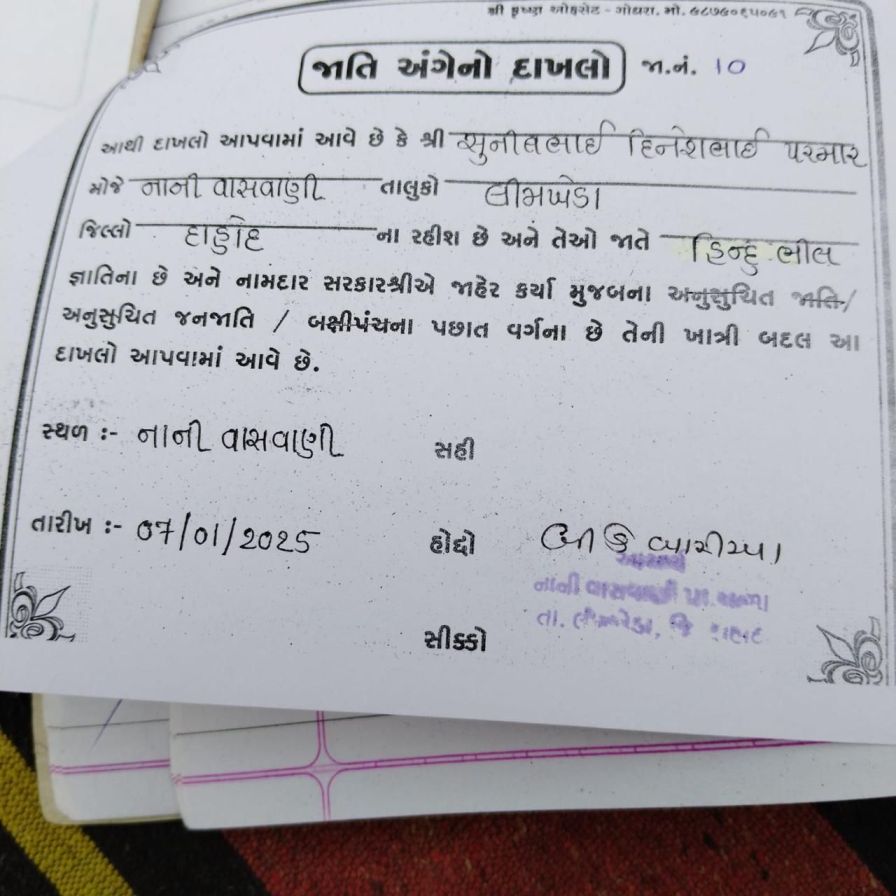 શ્રી કૃષ્ણ ઓફસેટ - ગોધરા. મો. ૯૮૭૯૦૬૫૦૯૧
જાતિ અંગેનો દાખલો જા.નં. 10
આથી દાખલો આપવામાં આવે છે કે શ્રી સુનીલભાઈ દિનેશભાઈ પરમાર
મોજે નાની વાસવાણી તાલુકો લીમખેડા
જિલ્લો દાહોદ ના રહીશ છે અને તેઓ જાતે હિન્દુ ભીલ
જ્ઞાતિના છે અને નામદાર સરકારશ્રીએ જાહેર કર્યા મુજબના અનુસુચિત જાતિ/
અનુસુચિત જનજાતિ / બક્ષીપંચના પછાત વર્ગના છે તેની ખાત્રી બદલ આ
દાખલો આપવામાં આવે છે.
સ્થળ :- નાની વાસવાણી સહી
તારીખ :- 07/01/2025 હોદ્દો
આચાર્ય
નાની વાસવાણી પ્રા. શાળા
તા. લીમખેડા, જિ દાહોદ
સીક્કો